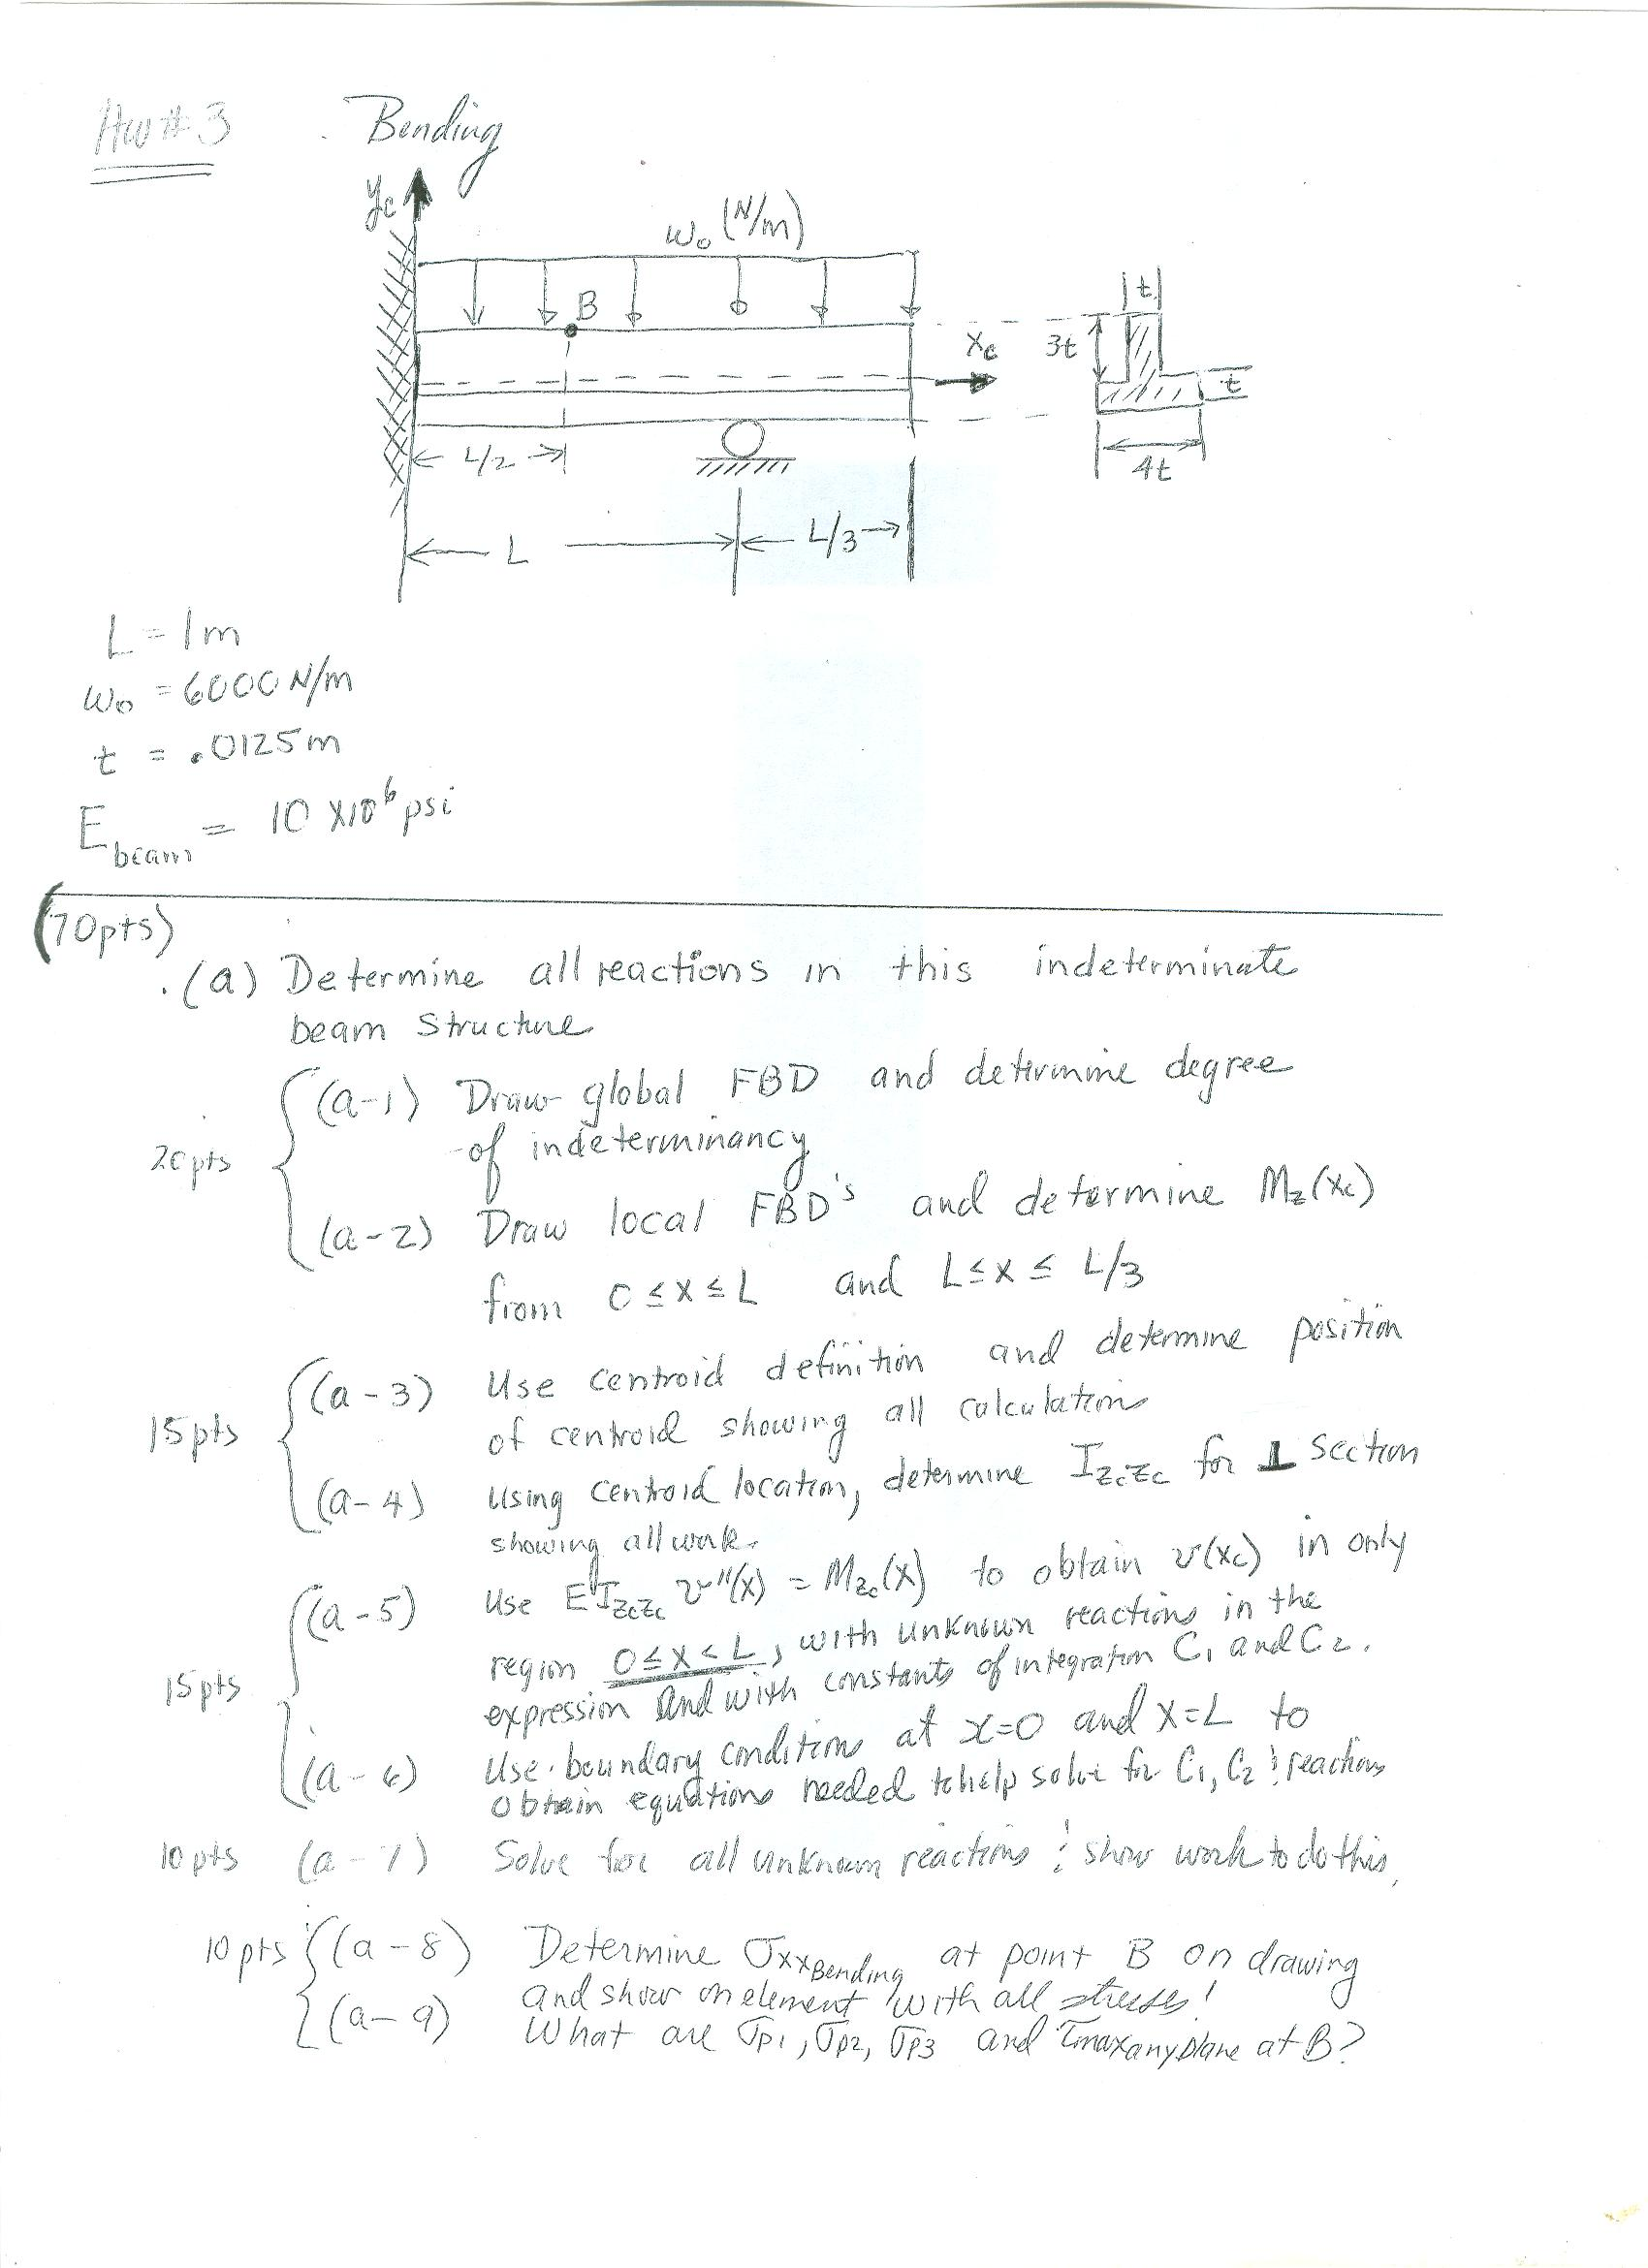 HW # 3 Bending
yc
w₀ (N/m)
B
t
xc
3t
t
L/2
4t
L
L/3
L = 1m
w₀ = 6000 N/m
t = .0125m
E beam = 10 x10⁶ psi
(70pts)
(a) Determine all reactions in this indeterminate
beam structure
(a-1) Draw global FBD and determine degree
of indeterminancy
20pts
(a-2) Draw local FBD's and determine Mz(xc)
from 0 ≤ x ≤ L and L ≤ x ≤ L/3
(a-3) Use centroid definition and determine position
of centroid showing all calculations
15pts
(a-4) Using centroid location, determine Izczc for ⊥ section
showing all work.
(a-5) Use E Izczc v''(x) = Mzc(x) to obtain v(xc) in only
region 0≤x<L, with unknown reactions in the
15pts
expression and with constants of integration C₁ and C₂.
(a-6) Use boundary conditions at x=0 and x=L to
obtain equations needed to help solve for C₁, C₂ & reactions
10pts (a-7) Solve for all unknown reactions & show work to do this.
10pts (a-8) Determine σxxBending at point B on drawing
and show on element with all stresses!
(a-9) What are σp1, σp2, σp3 and τmaxanyplane at B?